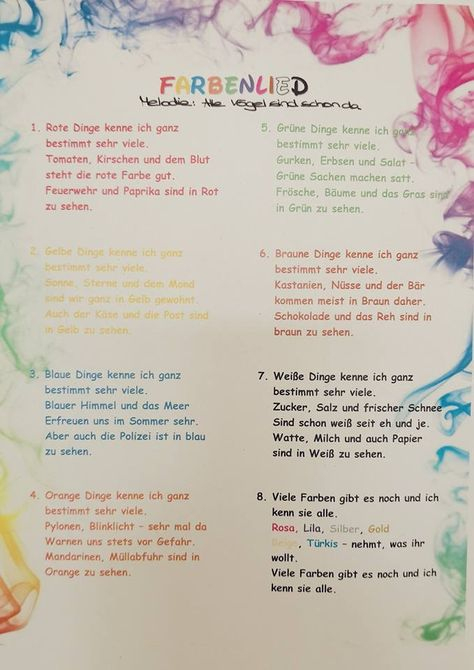 FARBENLIED
Melodie: Alle Vögel sind schon da
1. Rote Dinge kenne ich ganz
bestimmt sehr viele.
Tomaten, Kirschen und dem Blut
steht die rote Farbe gut.
Feuerwehr und Paprika sind in Rot
zu sehen.
2. Gelbe Dinge kenne ich ganz
bestimmt sehr viele.
Sonne, Sterne und dem Mond
sind wir ganz in Gelb gewohnt.
Auch der Käse und die Post sind
in Gelb zu sehen.
3. Blaue Dinge kenne ich ganz
bestimmt sehr viele.
Blauer Himmel und das Meer
Erfreuen uns im Sommer sehr.
Aber auch die Polizei ist in blau
zu sehen.
4. Orange Dinge kenne ich ganz
bestimmt sehr viele.
Pylonen, Blinklicht - sehr mal da
Warnen uns stets vor Gefahr.
Mandarinen, Müllabfuhr sind in
Orange zu sehen.
5. Grüne Dinge kenne ich ganz
bestimmt sehr viele.
Gurken, Erbsen und Salat -
Grüne Sachen machen satt.
Frösche, Bäume und das Gras sind
in Grün zu sehen.
6. Braune Dinge kenne ich ganz
bestimmt sehr viele.
Kastanien, Nüsse und der Bär
kommen meist in Braun daher.
Schokolade und das Reh sind in
braun zu sehen.
7. Weiße Dinge kenne ich ganz
bestimmt sehr viele.
Zucker, Salz und frischer Schnee
Sind schon weiß seit eh und je.
Watte, Milch und auch Papier
sind in Weiß zu sehen.
8. Viele Farben gibt es noch und ich
kenn sie alle.
Rosa, Lila, Silber, Gold
Beige, Türkis - nehmt, was ihr
wollt.
Viele Farben gibt es noch und ich
kenn sie alle.